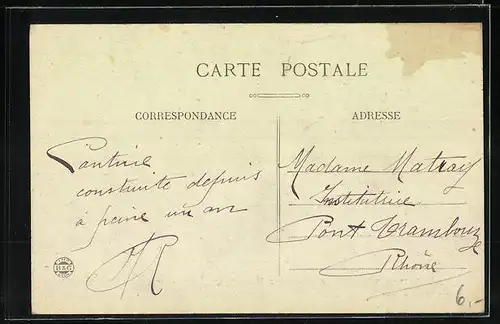 CARTE POSTALE
CORRESPONDANCE
construite depuis
à peine un an
HR
B&G
ADRESSE
Madame Matray
Institutrice
Pont Trambouze
Rhône
6.-